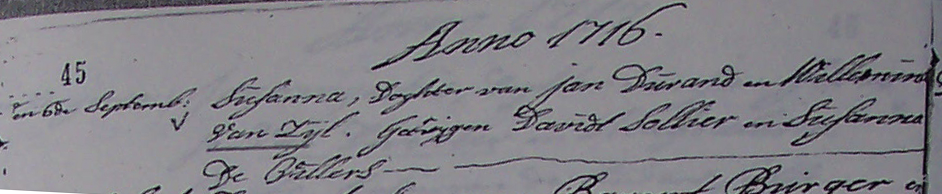 Anno 1716.
45
en 6de Septemb: Susanna, Doghter van Jan Durand en Willemin
Van Zyl. Getuijgen Davidt Sollier en Susanna
De Villers
Barent Burger